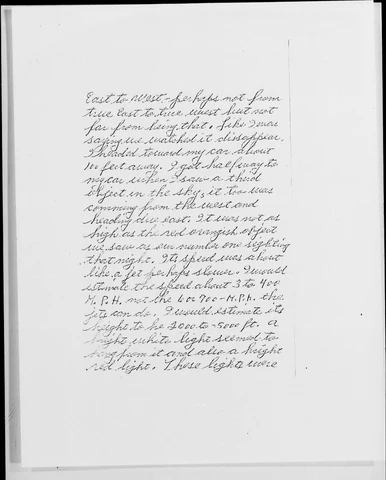 East to West - perhaps not from
true East to true west but not
far from being that. Like I was
saying we watched it disappear.
I headed toward my car about
100 feet away. I got halfway to
my car when I saw a third
object in the sky, it too was
comming from the west and
heading due east. It was not as
high as the red orangish object
we saw as our number one sighting
that night. Its speed was about
like a jet perhaps slower. I would
estimate the speed about 3 to 400
M.P.H. not the 6 or 700 - M.P.h. the
jets can do. I would estimate its
height to be 2000 to 5000 ft. a
bright white light seemed to
from it and also a bright
red light. These lights were